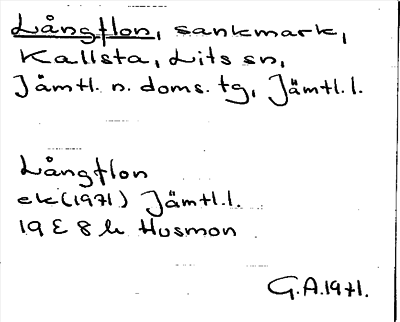 Långflon, sankmark,
Kallsta, Lits sn,
Jämtl. n. doms. tg, Jämtl. l.
Långflon
ek (1971) Jämtl. l.
19 E 8 h Husmon
G. A. 1971.